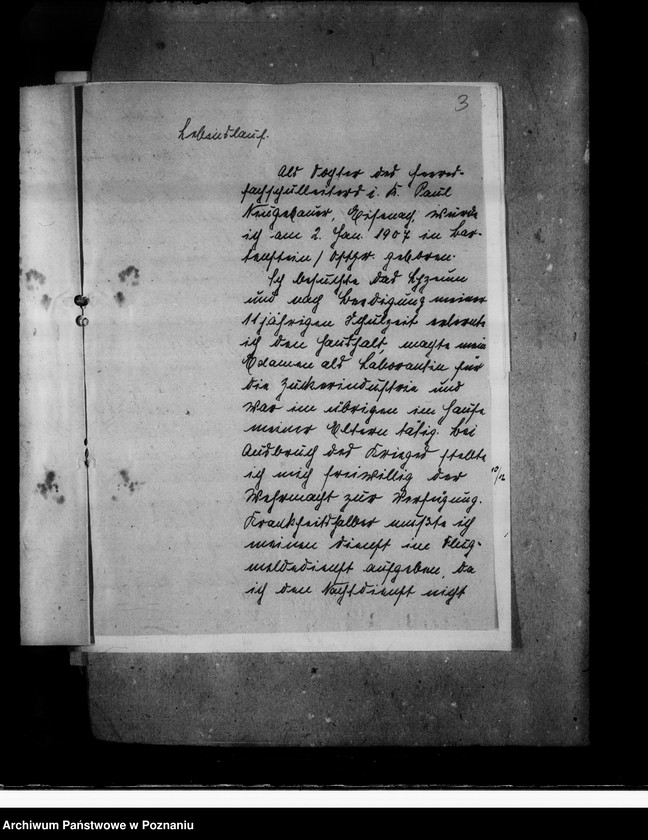 3
Lebenslauf.
Als Tochter des Heeres-
fachschulleiters i. R. Paul
Neugebauer, Eisenach, wurde
ich am 2. Jan. 1907 in Bar-
tenstein / Ostpr. geboren.
Ich besuchte das Lyzeum
und nach Beedigung meiner
11 jährigen Schulzeit erlernte
ich den Haushalt, machte mein
Examen als Laborantin für
die Zuckerindustrie und
war im übrigen im Hause
meiner Eltern tätig. Bei
Ausbruch des Krieges stellte
ich mich freiwillig der
Wehrmacht zur Verfügung.
Krankheitshalber mußte ich
meinen Dienst im Flug-
meldedienst aufgeben, da
ich den Nachtdienst nicht
Archiwum Państwowe w Poznaniu